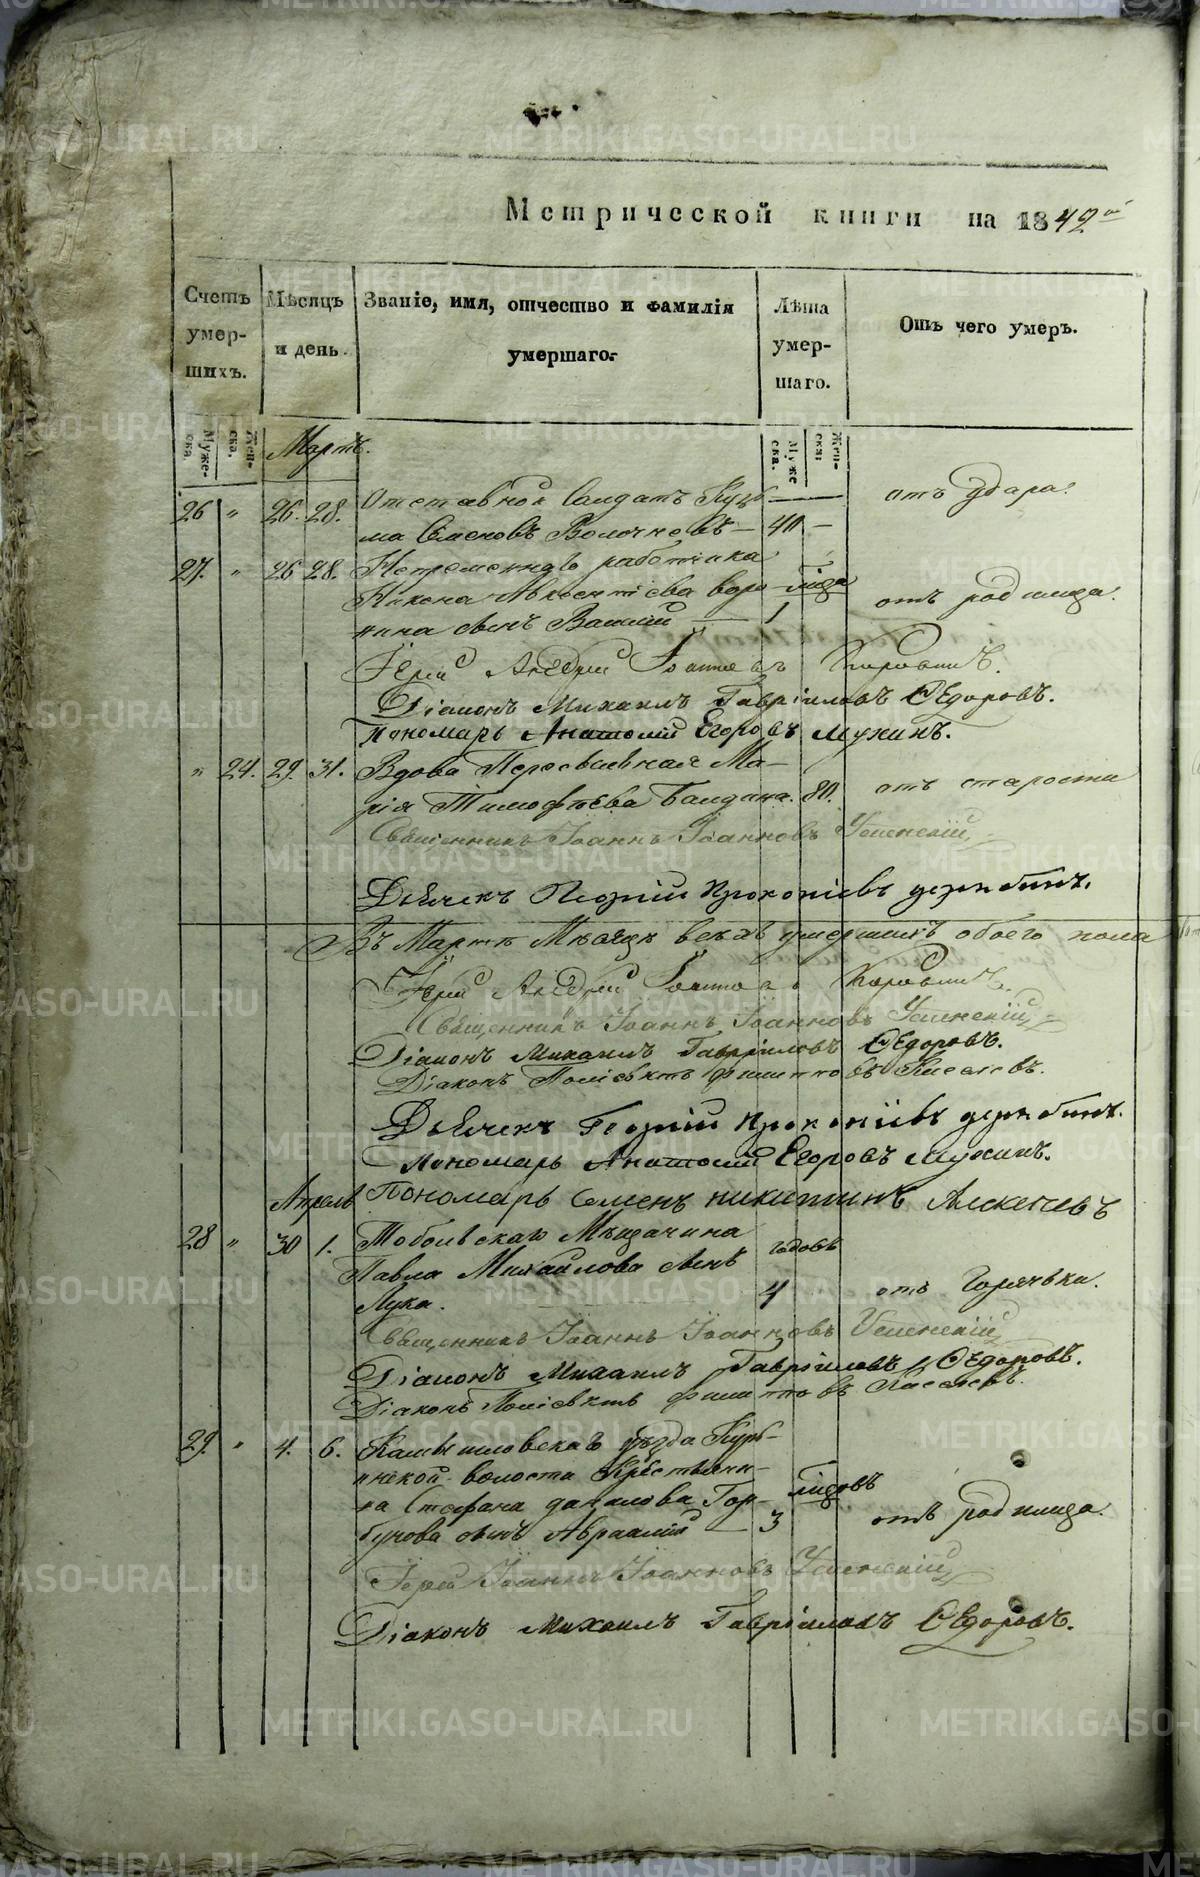 Метрической книги на 1842й
Счетъ умер-шихъ.
Мѣсяцъ и день.
Званіе, имя, отчество и фамилія умершаго.
Лѣта умер-шаго.
Отъ чего умеръ.
Муже-ска. Жен-ска.
Мартъ.
Муже ска. Жен-ска:
26 " 26. 28. Отставной Солдатъ Кузь- отъ удара.
ма Семеновъ Волочневъ — 40 —
27. " 26 28. Непременнаго работника
Никона Авксентіева Воро- года
нина сынъ Василій — 1 отъ родимца.
Іерей Андрей Іоанновъ Коровинъ.
Діаконъ Михаилъ Гавріиловъ Ѳедоровъ.
Пономарь Анатолій Егоровъ Мухинъ.
" 24. 29. 31. Вдова Ма-
рія Тимофѣева Балдина. 80. отъ старости
Священникъ Іоаннъ Іоанновъ Успенскій
Дьячекъ Георгій Прокопіевъ Дерябинъ.
Въ Мартѣ Мѣсяцѣ всѣхъ умершихъ обоего пола
Іерей Андрей Іоанновъ Коровинъ.
Священникъ Іоаннъ Іоанновъ Успенскій
Діаконъ Михаилъ Гавріиловъ Ѳедоровъ.
Діаконъ Поліевктъ Филипповъ Киселевъ.
Дьячекъ Георгій Прокопіевъ Дерябинъ.
Пономарь Анатолій Егоровъ Мухинъ.
Апрель Пономарь Семенъ Никитинъ
28 " 30 1. Тобольскаго Мѣщанина годовъ
Павла Михайлова сынъ
Лука. 4 отъ Горячки.
Священникъ Іоаннъ Іоанновъ Успенскій
Діаконъ Михаилъ Гавріиловъ Ѳедоровъ.
Діаконъ Поліевктъ Филипповъ Киселевъ.
29. " 4. 6. Камышловскаго уѣзда Курь-
инской волости Крестьяни-
на Стефана Данилова Гор- годовъ
бунова сынъ Авраамій — 3 отъ родимца.
Іерей Іоаннъ Іоанновъ Успенскій
Діаконъ Михаилъ Гавріиловъ Ѳедоровъ.
METRIKI.GASO-URAL.RU